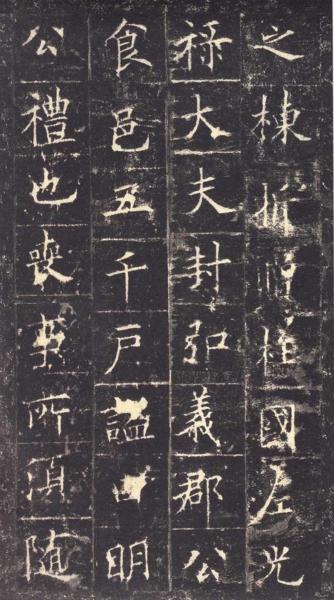 之棟折贈柱國左光
祿大夫封弘義郡公
食邑五千戶謚曰明
公禮也喪葬所須隨